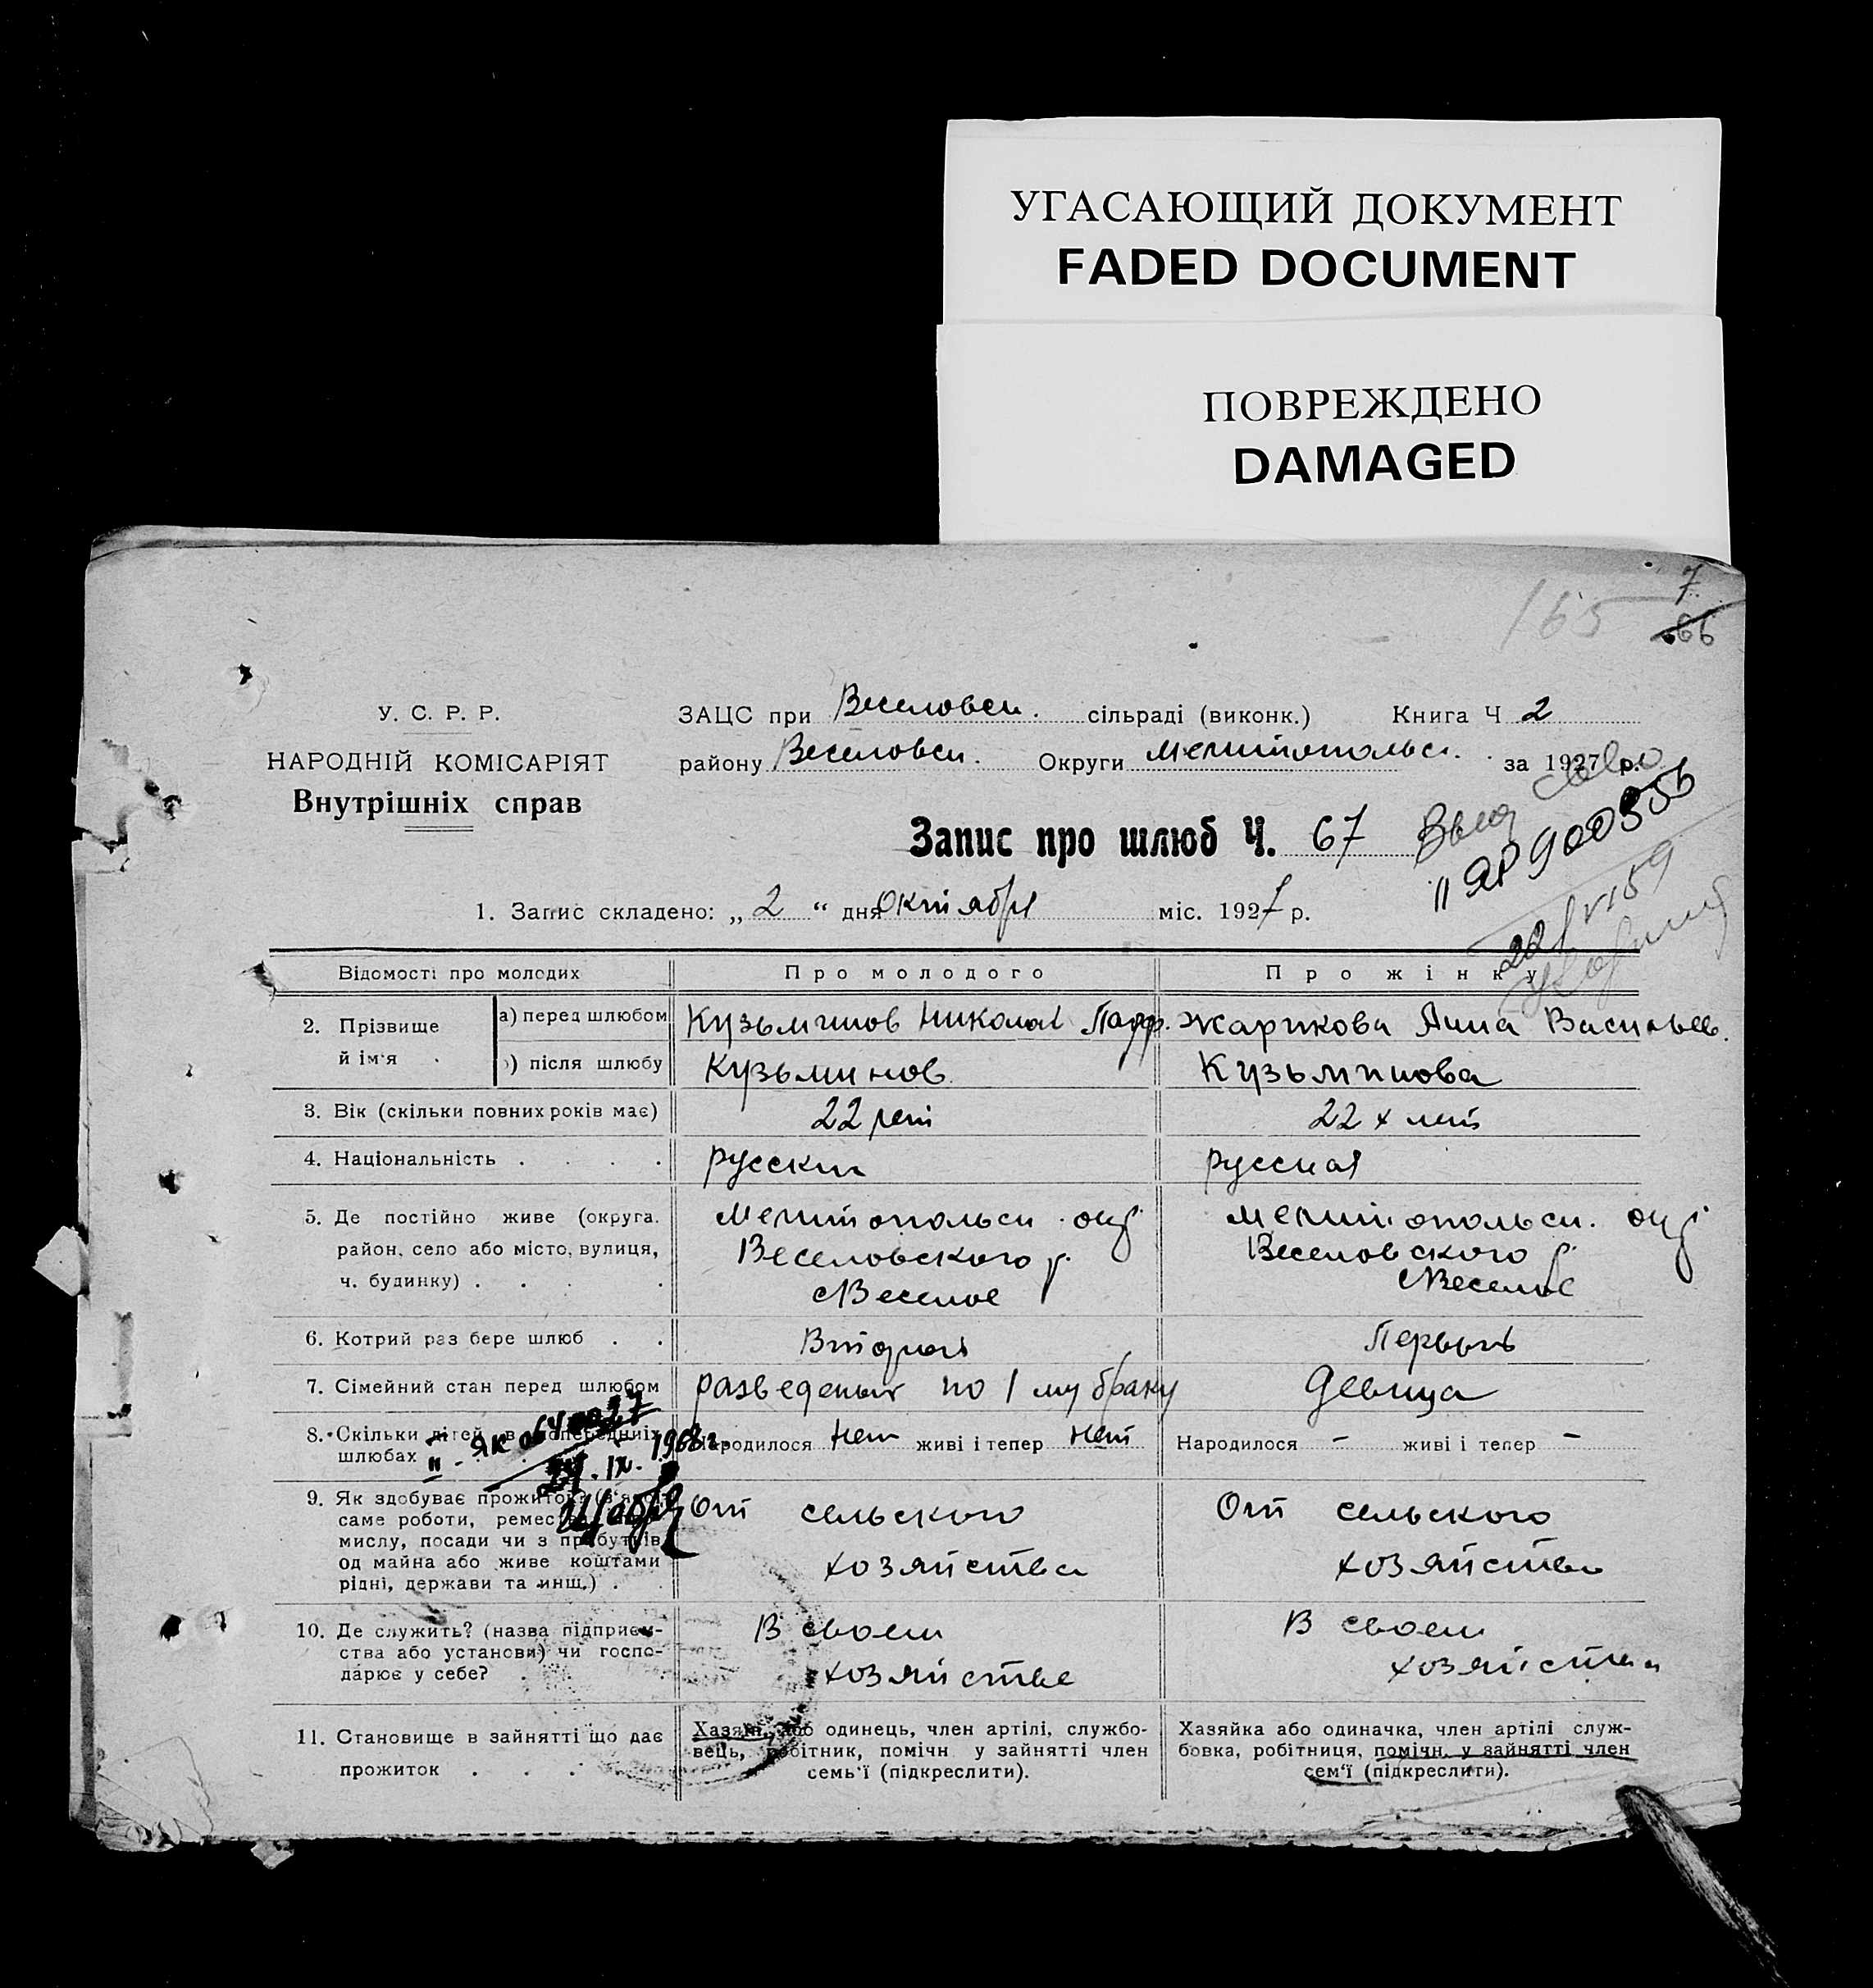 УГАСАЮЩИЙ ДОКУМЕНТ
FADED DOCUMENT
ПОВРЕЖДЕНО
DAMAGED
165 7
66
У. С. Р. Р.
НАРОДНІЙ КОМІСАРІЯТ
Внутрішніх справ
ЗАЦС при Веселовск. сільраді (виконк.) Книга Ч 2
району Веселовск. Округи Мелитопольск. за 1927 р.
Запис про шлюб Ч. 67
1. Запис складено: „ 2 “ дня Октября міс. 1927 р.
Відомості про молодих Про молодого Про жінку
2. Прізвище й ім'я а) перед шлюбом Кузьминов Николай Парф. Жарикова Анна Васильев.
) після шлюбу Кузьминов Кузьминова
3. Вік (скільки повних років має) 22 лет 22 х лет
4. Національність . . . . русский русская
5. Де постійно живе (округа. Мелитопольск. окр Мелитопольск. окр
район, село або місто, вулиця, Веселовского р. Веселовского р.
ч. будинку) . . . . с Веселое с Веселое
6. Котрий раз бере шлюб . . Вторый Первый
7. Сімейний стан перед шлюбом разведеный по 1 му браку девица
8. Скільки дітей в попередніх шлюбах Народилося нет живі і тепер нет Народилося – живі і тепер –
24. IX. 1968 г.
9. Як здобуває прожиток? От сельского От сельского
саме роботи,
мислу, посади чи з прибутків
од майна або живе коштами хозяйства хозяйства
рідні, держави та инш.) .
10. Де служить? (назва підприєм- В своем В своем
ства або установи) чи госпо-
дарює у себе? хозяйстве хозяйстве
11. Становище в зайнятті що дає Хазяїн, або одинець, член артілі, службо- Хазяйка або одиначка, член артілі служ-
вець, робітник, помічн у зайнятті член бовка, робітниця, помічн. у зайнятті член
прожиток . . . семь'ї (підкреслити). сем'ї (підкреслити).